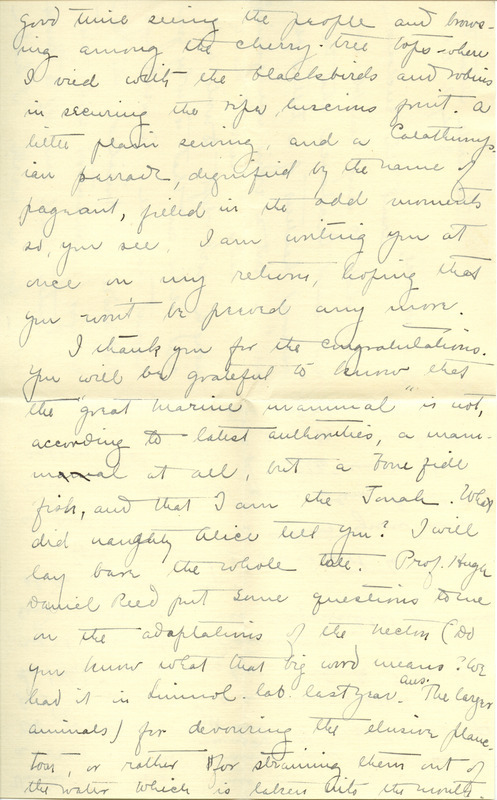 good time seeing the people and brows-
ing among the cherry-tree tops - where
I vied with the blackbirds and robins
in securing the ripe luscious fruit. A
little plain sewing, and a Calathump-
ian parrade, dignified by the name of
pageant, filled in the odd moments
so, you see, I am writing you at
once on my return, hoping that
you won't be peeved any more.
I thank you for the congratulations.
You will be grateful to know that
the "great marine mammal" is not,
according to latest authorities, a mam-
mal at all, but a bone fide
fish, and that I am the Jonah. What
did naughty Alice tell you? I will
lay bare the whole tale. Prof. Hugh
Daniel Reed put some questions to me
on the adaptations of the necton (Do
you know what that big word means? We
had it in Limnol. lab. last year. Ans. The larger
animals) for devouring the elusive planc-
ton, or rather for straining them out of
the water which is taken into the mouth.